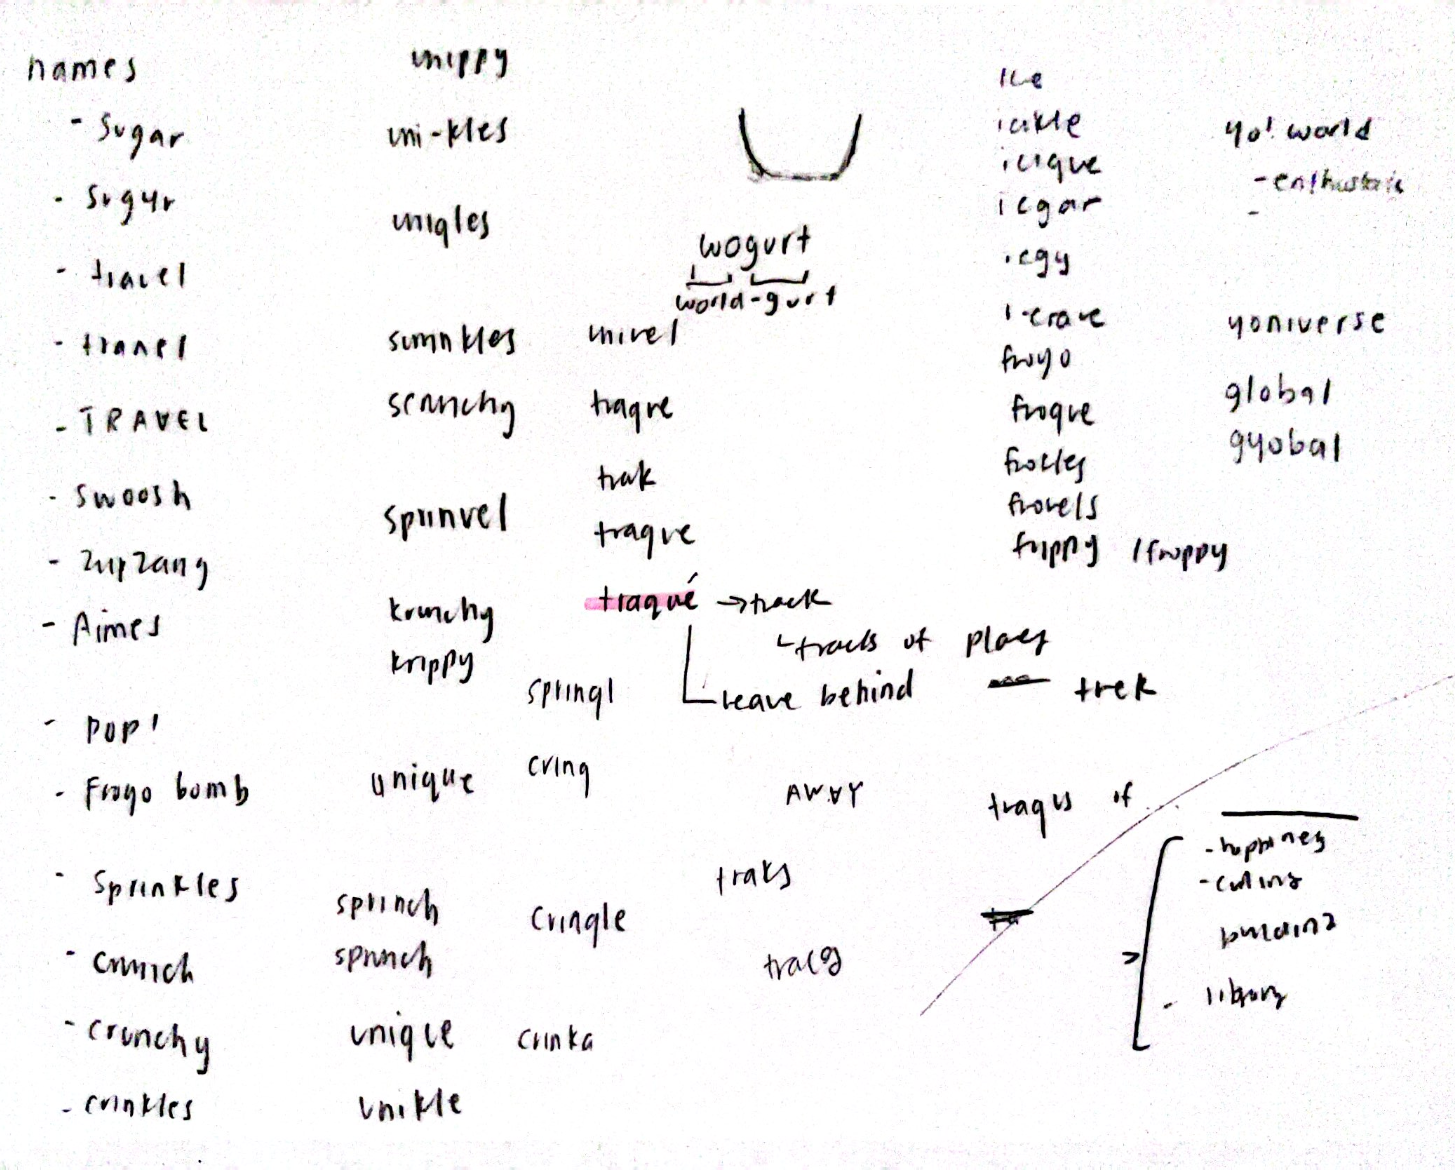 names
- Sugar
- sugyr
- travel
- TRAVEL
- swoosh
- Aimes
- POP!
- Froyo bomb
- Sprinkles
- crunch
- crunchy
- crinkles
uni-kles
uniqles
scrunchy
sprinvel
krunchy
krippy
unique
sprinch
sprunch
unique
unikle
wogurt
world-gurt
traque
trak
traque
traqué → track
tracks of places
leave behind
trek
springl
cring
cringle
crinka
AWAY
traks
traqus of ...
- happiness
library
ice
ickle
icique
icgar
icgy
i-crave
froyo
froque
frocles
frovels
frippy / froppy
yo! world
yoniverse
global
gyobal